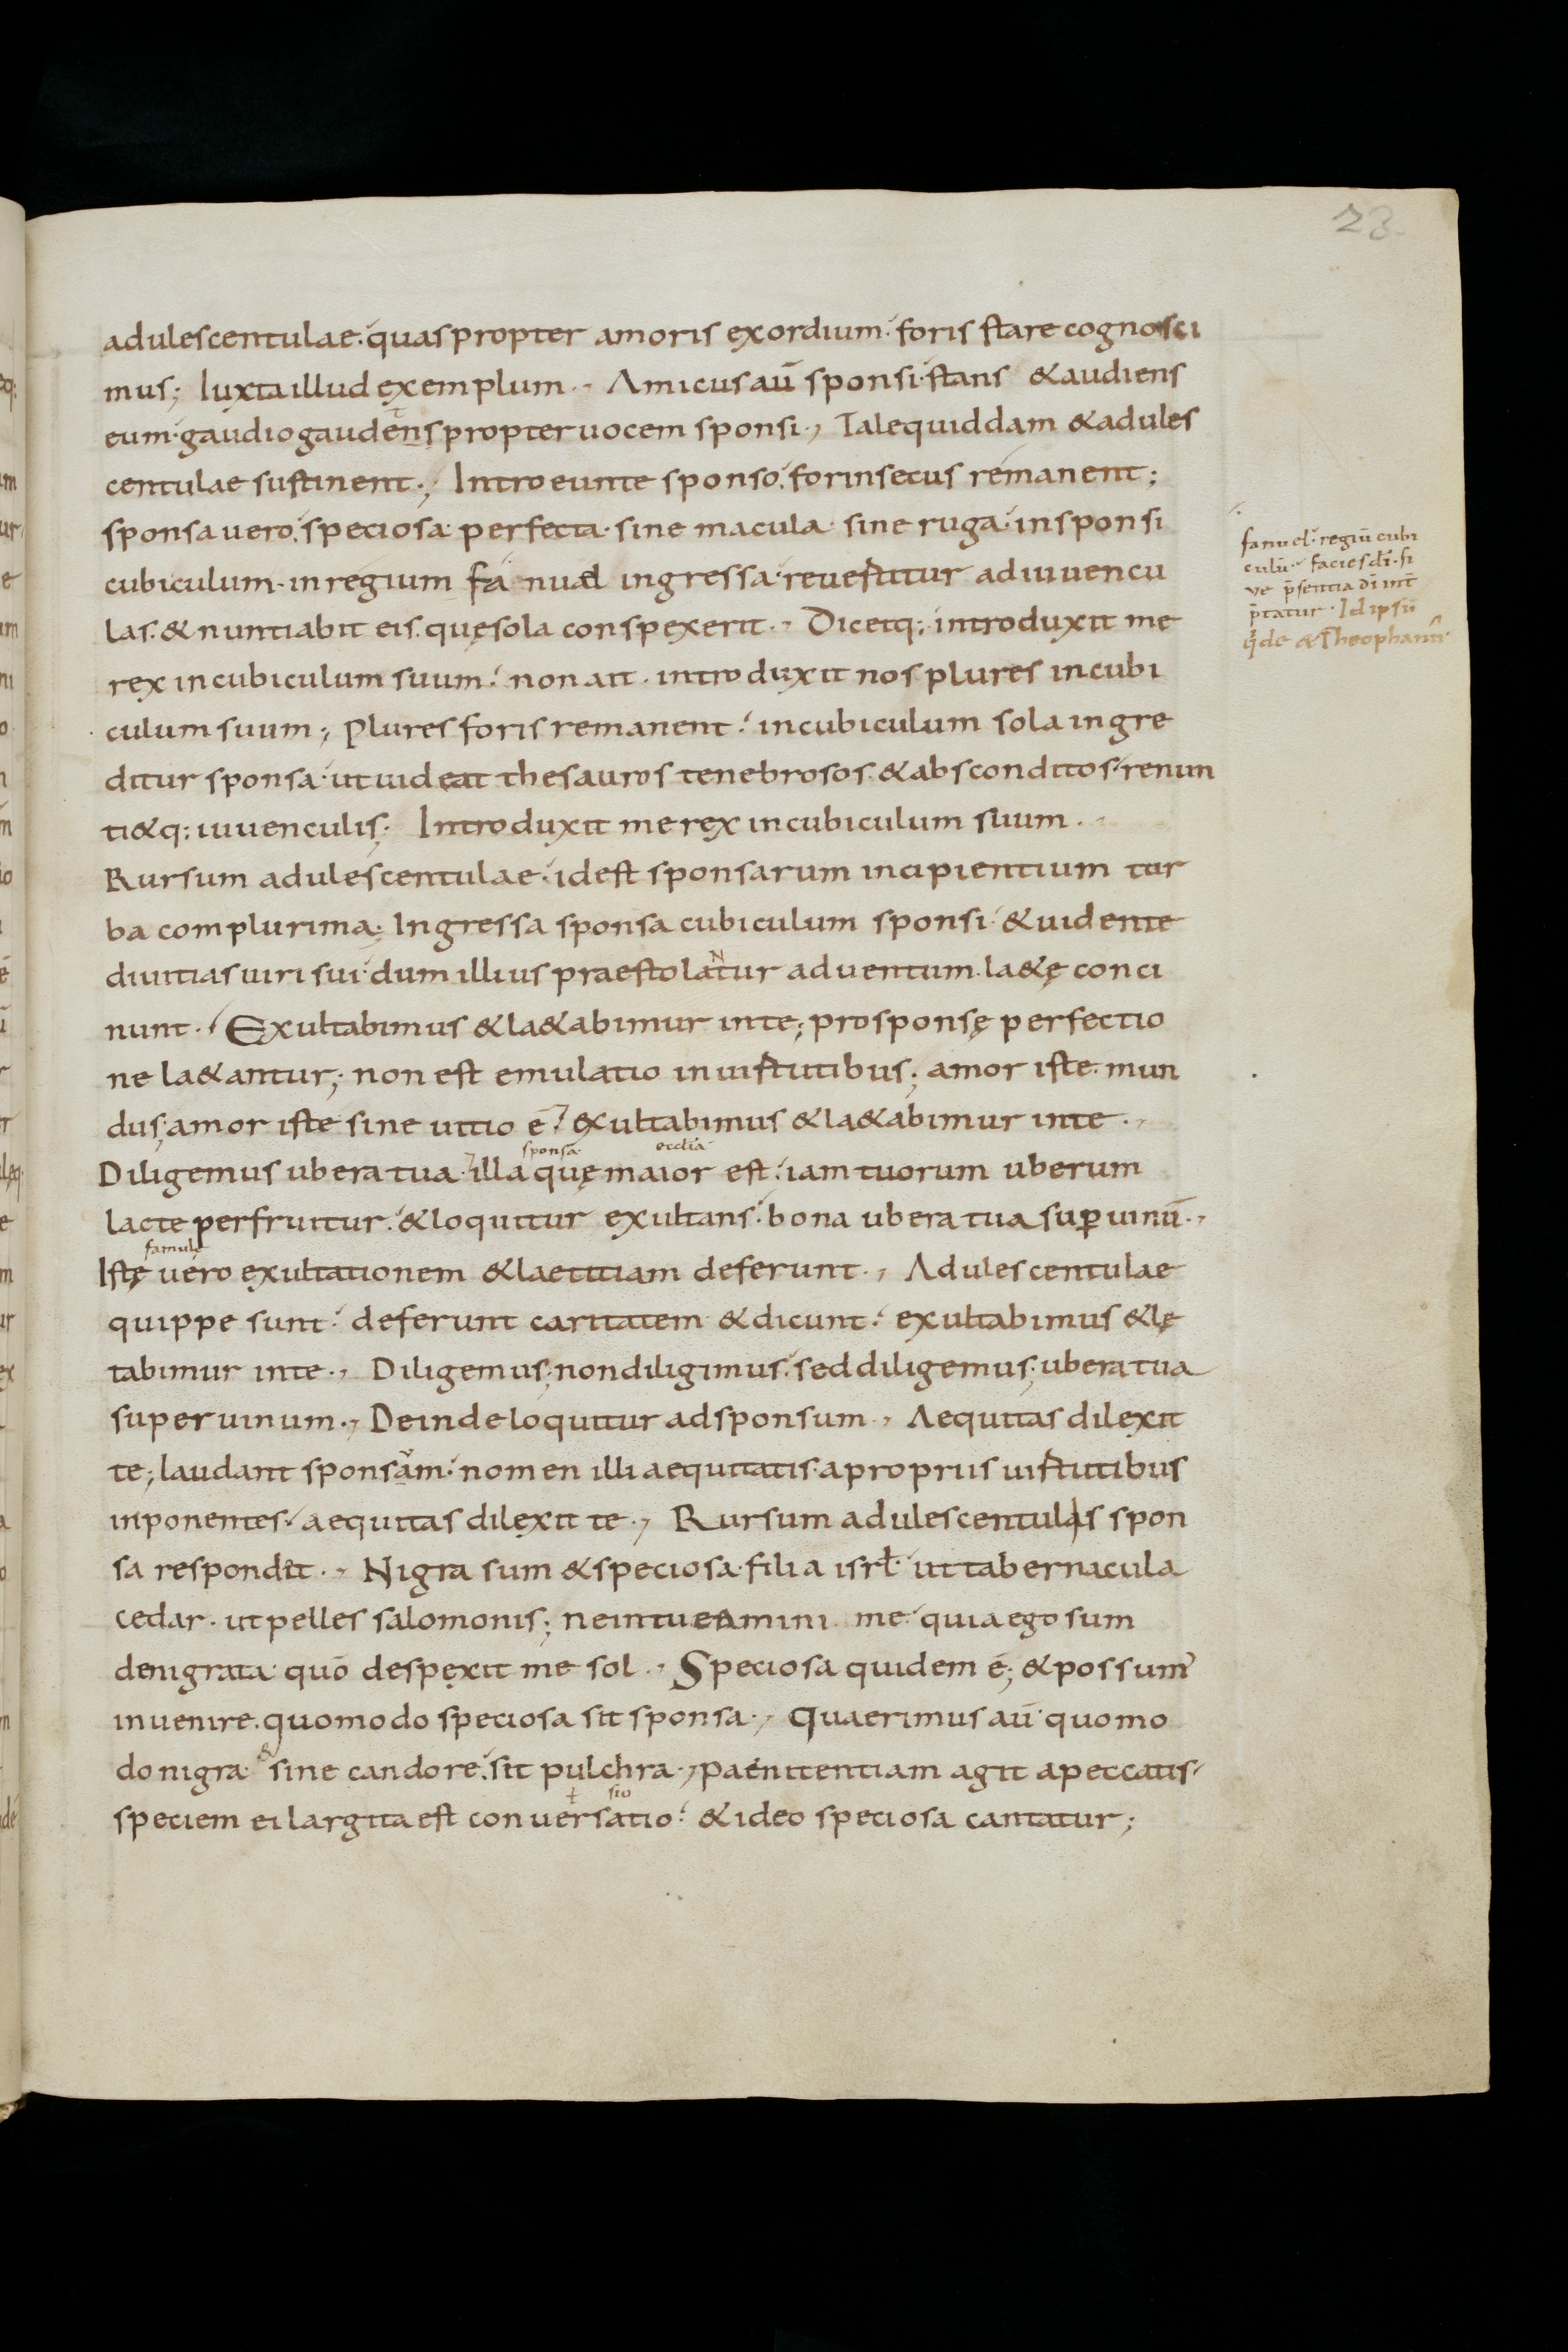 23
adulescentulae. quas propter amoris exordium. foris stare cognosci
mus; Iuxta illud exemplum. Amicus aū sponsi. stans & audiens
eum. gaudio gaudens propter uocem sponsi. Tale quiddam & adules
centulae sustinent. Introeunte sponso. forinsecus remanent;
sponsa uero. speciosa perfecta. sine macula. sine ruga. in sponsi
cubiculum. in regium fanuel ingressa. reuertitur ad iuuencu
las. & nuntiabit eis. quę sola conspexerit. Dicetq; introduxit me
rex in cubiculum suum. non ait. introduxit nos plures in cubi
culum suum; Plures foris remanent. in cubiculum sola ingre
ditur sponsa. ut uideat thesauros tenebrosos. & absconditos. renun
ti&q; iuuenculis. Introduxit me rex in cubiculum suum.
Rursum adulescentulae. id est sponsarum incipientium tur
ba complurima. Ingressa sponsa cubiculum sponsi. & uidente
diuitias uiri sui. dum illius praestolatur aduentum. la&ę conci
nunt. Exultabimus & la&abimur in te; pro sponsę perfectio
ne la&antur; non est emulatio in uirtutibus; amor iste. mun
dus; amor iste sine uitio ē exultabimus & la&abimur in te.
sponsa ecclia
Diligemus ubera tua. illa quę maior est. iam tuorum uberum
lacte perfruitur. & loquitur exultans. bona ubera tua sup uinū.
famulę
Istę uero exultationem & laetitiam deferunt. Adulescentulae
quippe sunt. deferunt caritatem & dicunt. exultabimus & lę
tabimur in te. Diligemus; non diligimus. sed diligemus; ubera tua
super uinum. Deinde loquitur ad sponsum. Aequitas dilexit
te; laudant sponsam. nomen illi aequitatis. a propriis uirtutibus
inponentes. aequitas dilexit te. Rursum adulescentulis spon
sa respondit. Nigra sum & speciosa. filia isrł. ut tabernacula
cedar. ut pelles salomonis; ne intueamini me quia ego sum
denigrata quō despexit me sol. Speciosa quidem ē; & possum'
inuenire. quomodo speciosa sit sponsa. Quaerimus aū quomo
do nigra & sine candore. sit pulchra. paenitentiam agit a peccatis.
sio
speciem ei largita est conuersatio. & ideo speciosa cantatur;
fanuel. regiū cubi
culū. facies dī. si
ve p̄sentia dī int
p̄tatur. Id ipsū
q̄de & Theophaniī